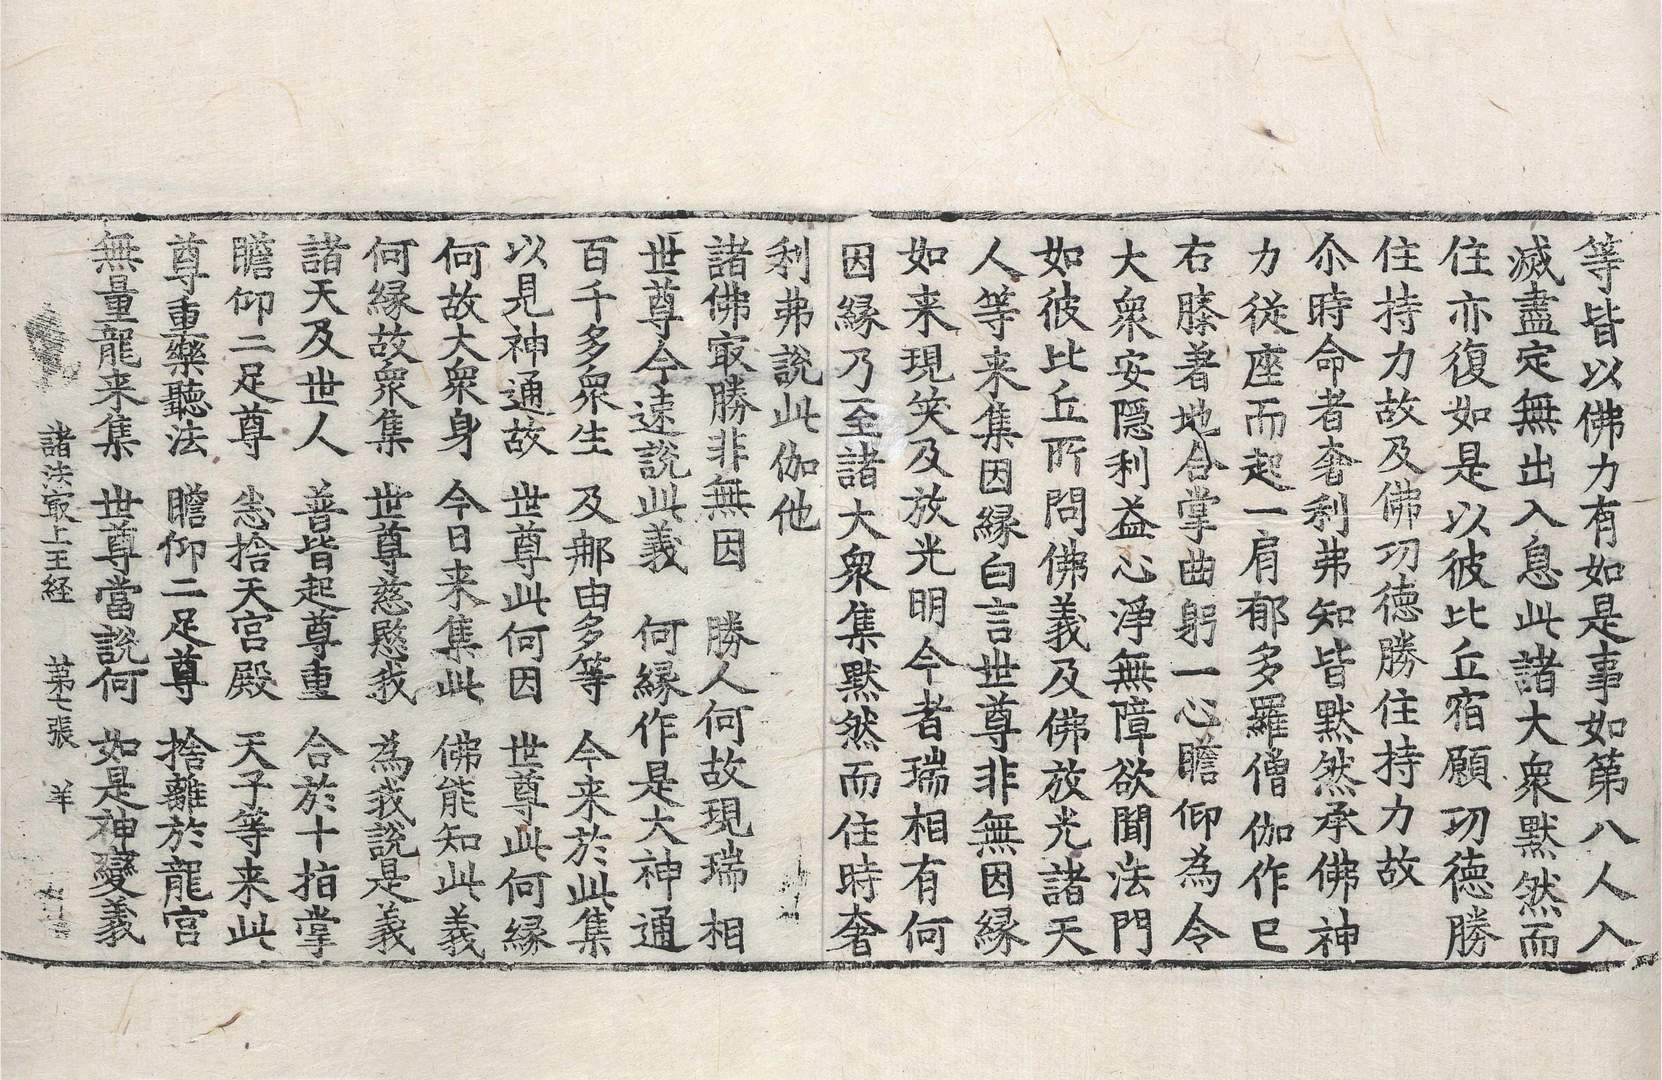 等皆以佛力有如是事如第八人入
滅盡定無出入息此諸大衆默然而
住亦復如是以彼比丘宿願功德勝
住持力故及佛功德勝住持力故
尒時命者奢利弗知皆默然承佛神
力從座而起一肩郁多羅僧伽作已
右膝著地合掌曲躬一心瞻仰為令
大衆安隱利益心淨無障欲聞法門
如彼比丘所問佛義及佛放光諸天
人等来集因緣白言世尊非無因緣
如来現笑及放光明今者瑞相有何
因緣乃至諸大衆集默然而住時奢
利弗說此伽他
諸佛㝡勝非無因　勝人何故現瑞相
世尊今遠說此義　何緣作是大神通
百千多衆生　及那由多等　今来於此集
以見神通故　世尊此何因　世尊此何緣
何故大衆身　今日来集此　佛能知此義
何緣故衆集　世尊慈愍我　為我說是義
諸天及世人　普皆起尊重　合於十指掌
瞻仰二足尊　悉捨天宫殿　天子等来此
尊重樂聽法　瞻仰二足尊　捨離於龍宫
無量龍来集　世尊當說何　如是神變義
諸法㝡上王経　第七張　羊